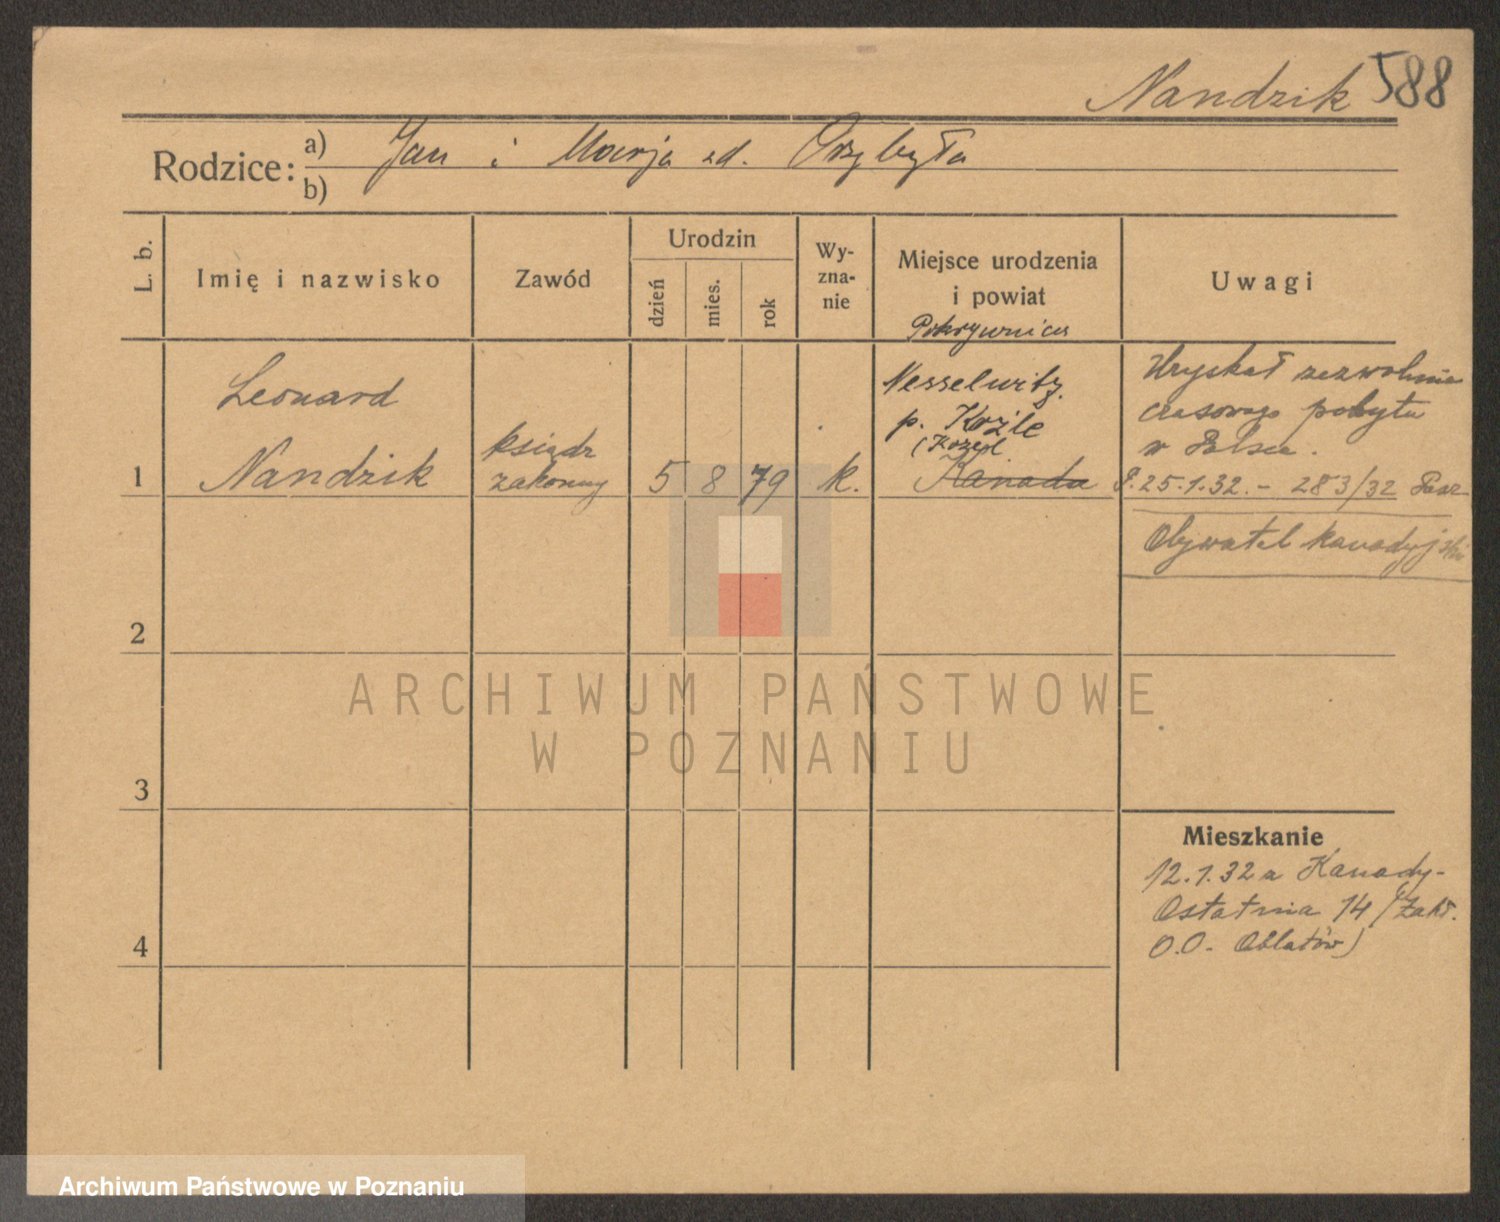 Nandzik 588
Rodzice: a) Jan i Marja zd. Przybyła
b)
L. b.
Imię i nazwisko
Zawód
Urodzin
dzień
mies.
rok
Wy-
zna-
nie
Miejsce urodzenia
i powiat
Uwagi
Pokrzywnica
1
Leonard
Nandzik
ksiądz
zakonny
5 8 79
k.
Nesselwitz
p. Koźle
(Kozel
Kanada
Uzyskał zezwolenie
czasowego pobytu
w Polsce.
25.1.32. - 283/32
Obywatel kanadyjski
2
3
4
Mieszkanie
12.1.32 z Kanady-
Ostatnia 14 (Zakł.
O.O. Oblatów)
ARCHIWUM PAŃSTWOWE
W POZNANIU
Archiwum Państwowe w Poznaniu